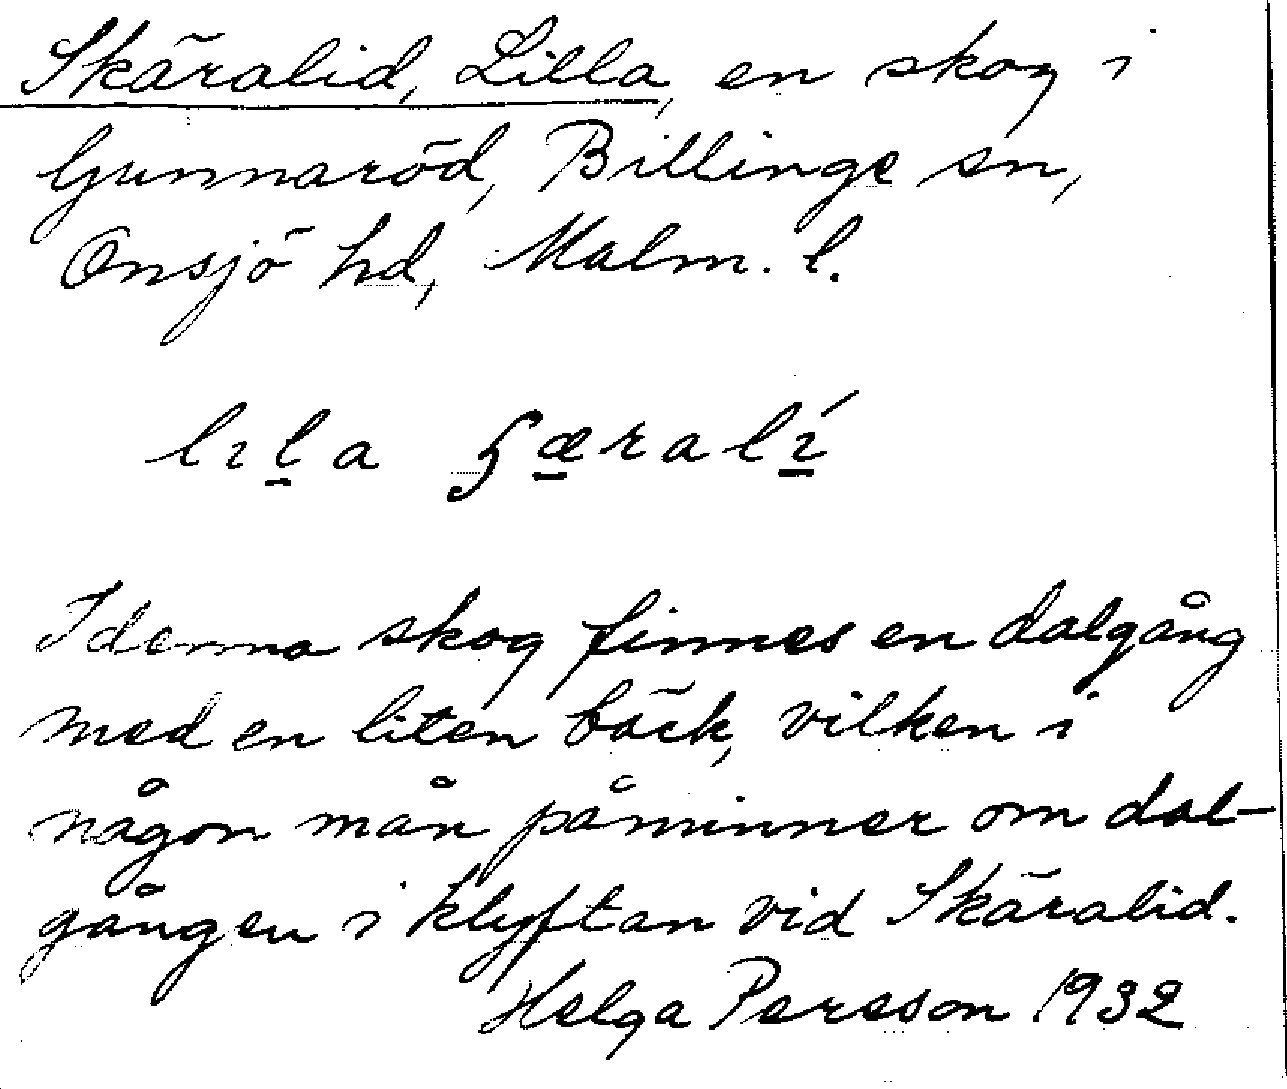 Skäralid, Lilla, en skog i
Gunnaröd, Billinge sn,
Onsjö hd, Malm. l.
lıla ʂæralí
I denna skog finnes en dalgång
med en liten bäck, vilken i
någon mån påminner om dal-
gången i klyftan vid Skäralid.
Helga Persson 1932